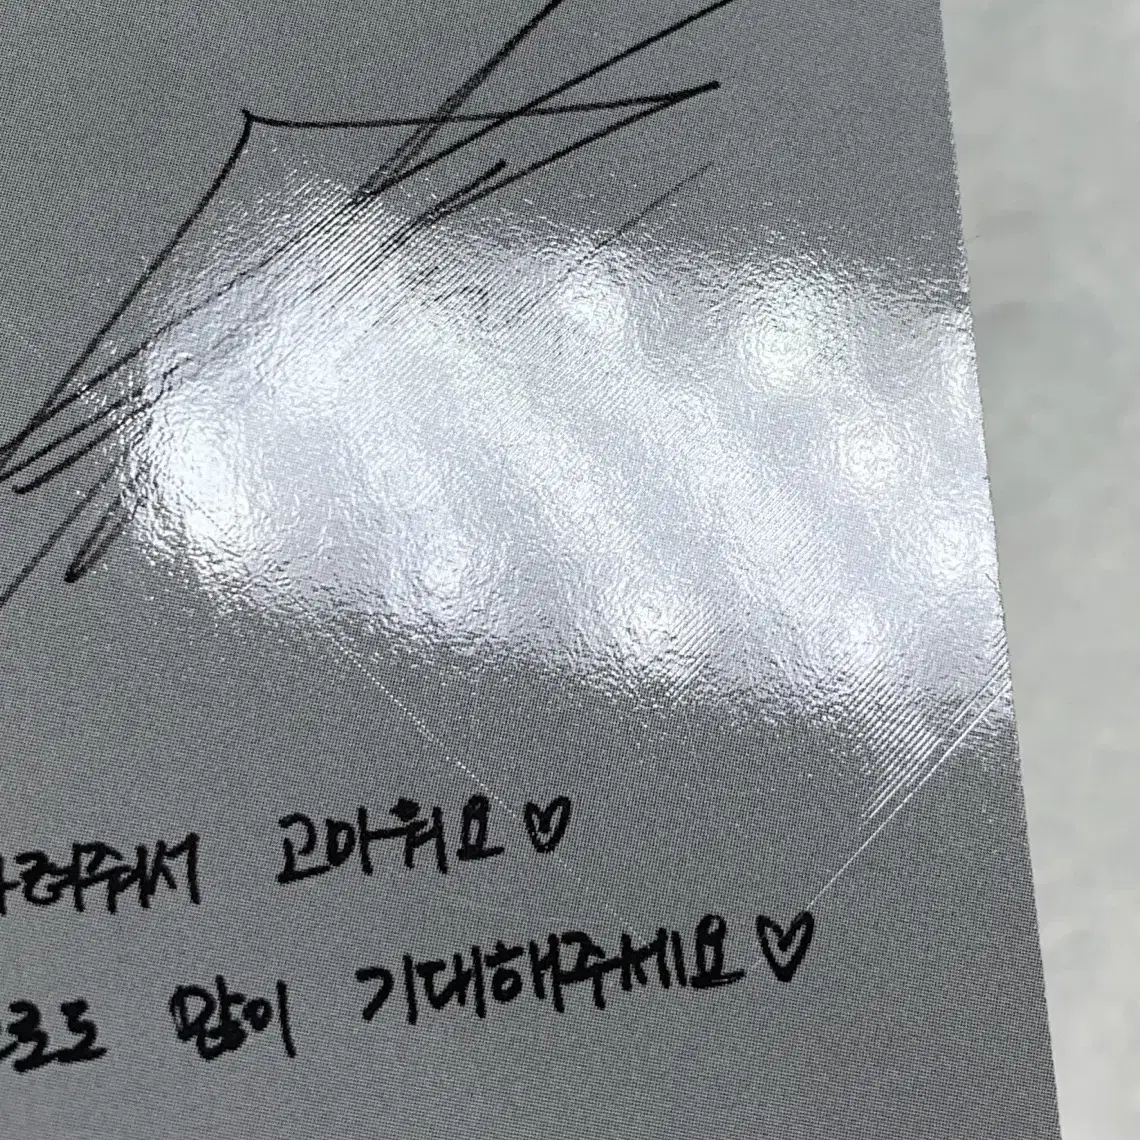 려줘서 고마워요♡
로도 많이 기대해주세요♡